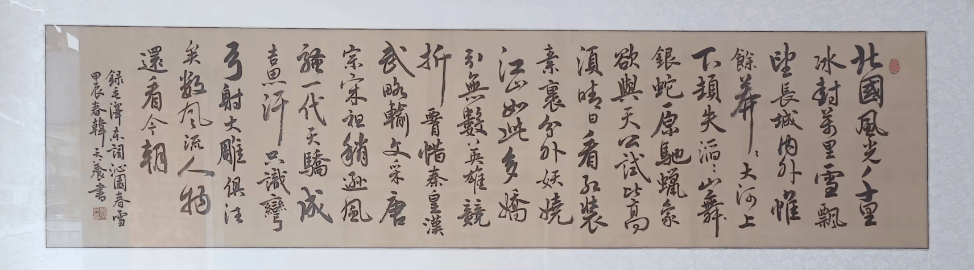 北國風光千里
冰封萬里雪飄
望長城內外惟
餘莽〻大河上
下頓失滔〻山舞
銀蛇原馳蠟象
欲與天公試比高
須晴日看紅裝
素裹分外妖嬈
江山如此多嬌
引無數英雄競
折腰惜秦皇漢
武略輸文采唐
宗宋祖稍遜風
騷一代天驕成
吉思汗只識彎
弓射大雕俱往
矣數風流人物
還看今朝
錄毛澤東詞沁園春雪
甲辰春韓天養書